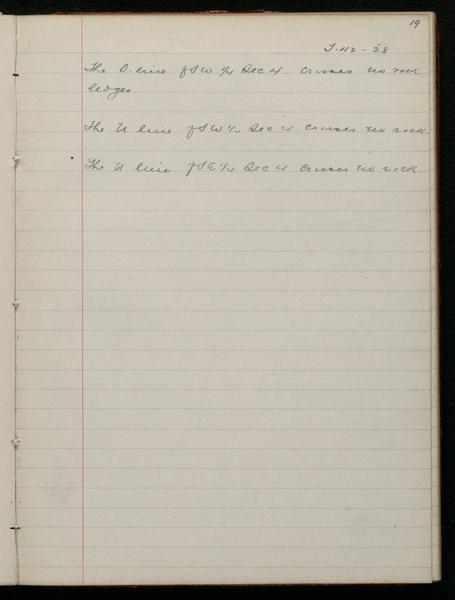 19
T. 42 - 28
The S. line of SW 1/4 Sec 4 crosses no rock
ledges.
The N line of SW 1/4 Sec 4 crosses no rock.
The N line of SE 1/4 Sec 4 crosses no rock.